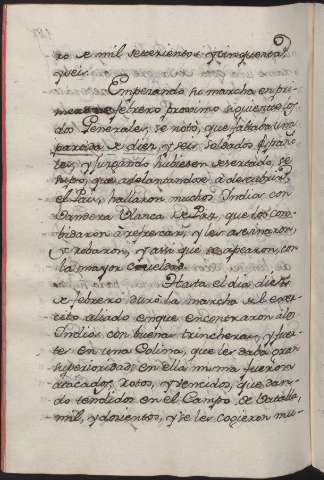 ro de mil setecientos y cinquenta,
y seis.
Empezando su marcha en pri-
mero de febrero proximo siguiente los
dos Generales, se notò, que faltaba una
partida de diez, y seis Soldados Españo-
les, y juzgando hubiesen desertado, se
supo, que adelantandose à descubrir
el Pais, hallaron muchos Indios con
Vandera Blanca de Paz, que los com-
bidaron à refrescar, y les asesinaron,
y robaron, y assi que se apearon, con
la mayor crueldad.
Hasta el dia diez
de febrero durò la marcha del exer-
cito aliado en que encontraron a los
Indios con buena trinchera, y fuer-
te en una Colina, que les daba gran
superioridad; en ella misma fueron
atacados, rotos, y vencidos, quedan-
do tendidos en el Campo de Batalla
mil, y doscientos, y se les cogieron mu-